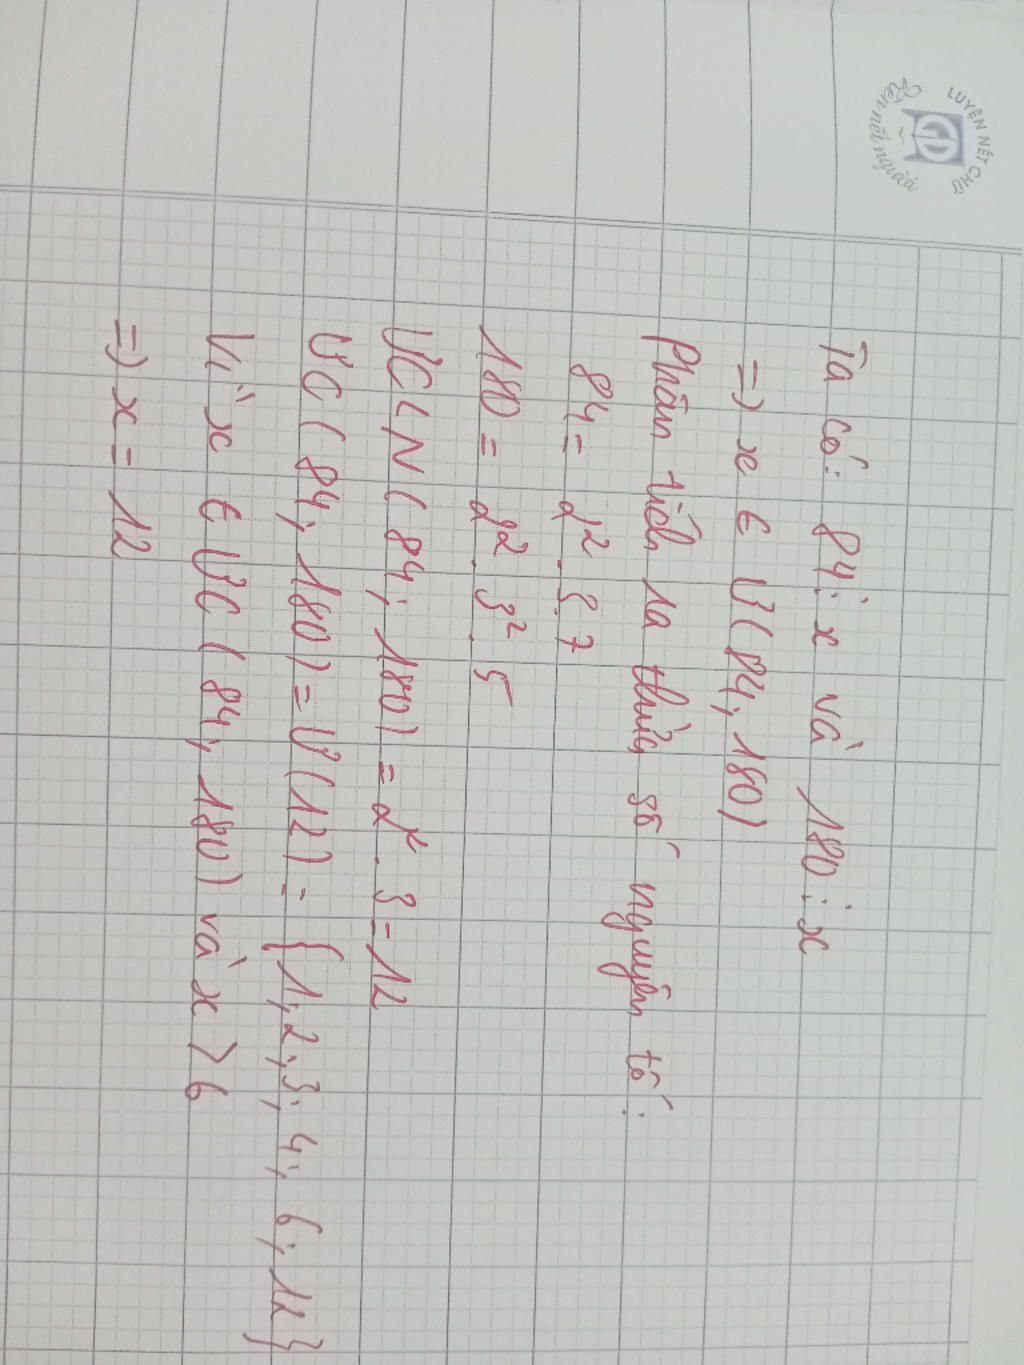 LUYỆN NÉT CHỮ
Rèn nết người
Ta có: 84 ⋮ x và 180 ⋮ x
=) x ∈ Ư(84, 180)
Phân tích ra thừa số nguyên tố:
84 = 2² . 3 . 7
180 = 2² . 3² . 5
ƯCLN (84; 180) = 2² . 3 = 12
ƯC (84; 180) = Ư(12) = {1; 2; 3; 4; 6; 12}
Vì x ∈ ƯC (84; 180) và x > 6
=) x = 12